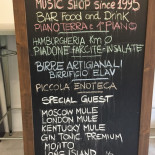 MUSIC SHOP SINCE 1995
BAR FOOD AND DRINK
PIANOTERRA E 1° PIANO
HAMBURGHERIA KM0
PIADONE FARCITE-INSALATE
BIRRE ARTIGIANALI
BIRRIFICIO ELAV
PICCOLA ENOTECA
SPECIAL GUEST
MOSCOW MULE
LONDON MULE
KENTUCKY MULE
GIN TONIC PREMIUM
MOJITO
LONG ISLAND